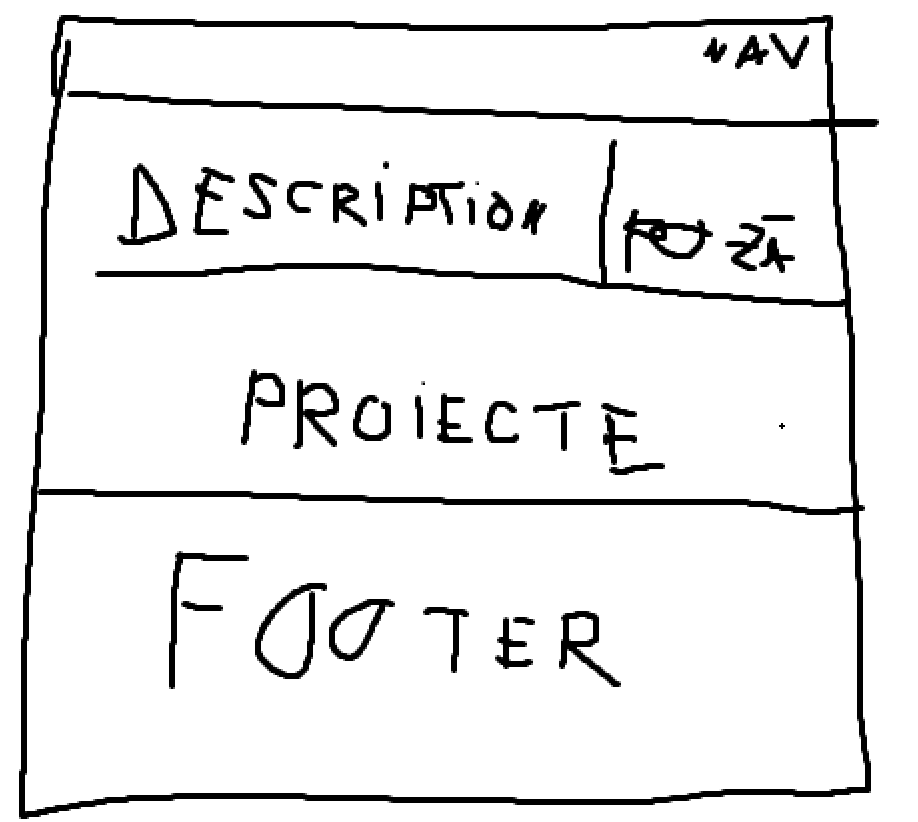 NAV
DESCRIPTION
POZA
PROIECTE
FOOTER